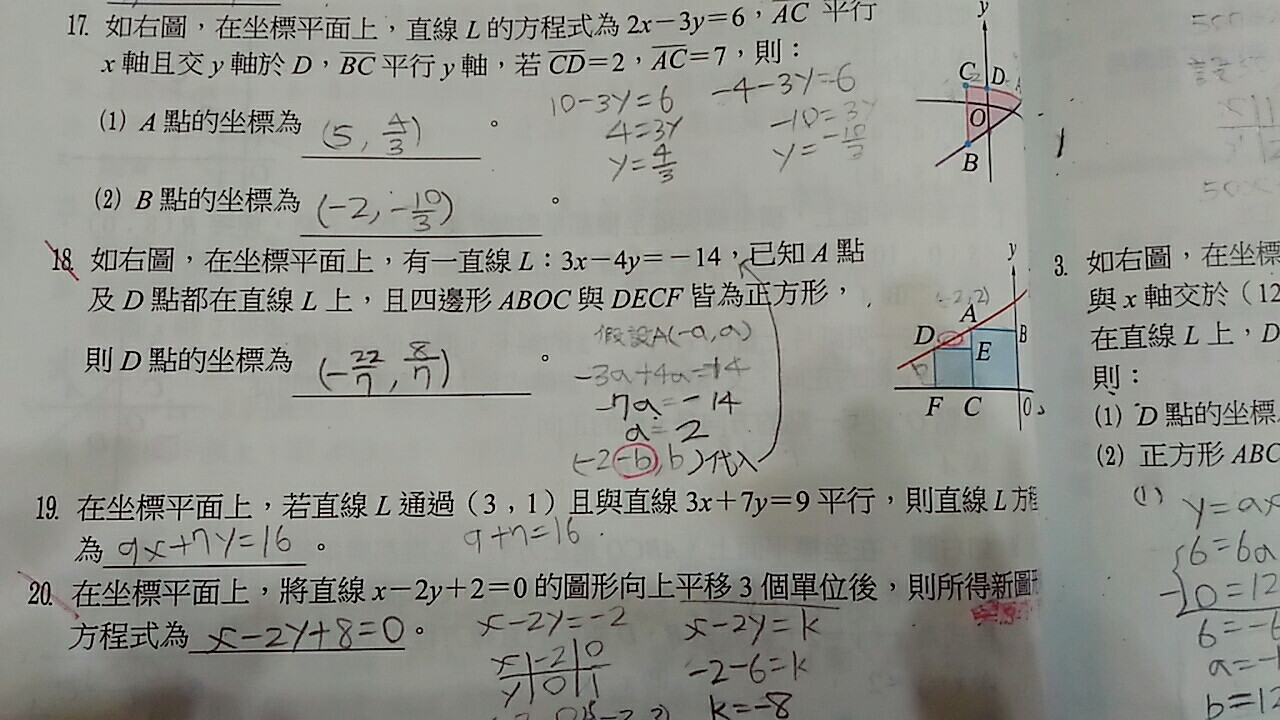 17. 如右圖，在坐標平面上，直線 L 的方程式為 2x−3y=6，AC 平行
x 軸且交 y 軸於 D，BC 平行 y 軸，若 CD=2，AC=7，則：
(1) A 點的坐標為 (5, 4/3) 。
10-3y=6
4=3y
y=4/3
-4-3y=6
-10=3y
y=-10/3
(2) B 點的坐標為 (-2, -10/3) 。
y
C 2 D A
O
B
18. 如右圖，在坐標平面上，有一直線 L：3x−4y=−14，已知 A 點
及 D 點都在直線 L 上，且四邊形 ABOC 與 DECF 皆為正方形，
則 D 點的坐標為 (-22/7, 8/7) 。
假設A(-a, a)
-3a+4a=14
-7a=-14
a=2
(-2-b, b)代入
y
(-2,2)
A
D B
E
F C O
19. 在坐標平面上，若直線 L 通過（3，1）且與直線 3x+7y=9 平行，則直線 L 方程
為 9x+7y=16 。
9+7=16
20. 在坐標平面上，將直線 x−2y+2=0 的圖形向上平移 3 個單位後，則所得新圖形
方程式為 x-2y+8=0 。
x-2y=-2
x -2 0
y 0 1
x-2y=k
-2-6=k
k=-8
3. 如右圖，在坐標
與 x 軸交於（12
在直線 L 上，D
則：
(1) D 點的坐標
(2) 正方形 ABC
(1)
y=ax
6=6a
0=12
6=-6
a=-1
b=12